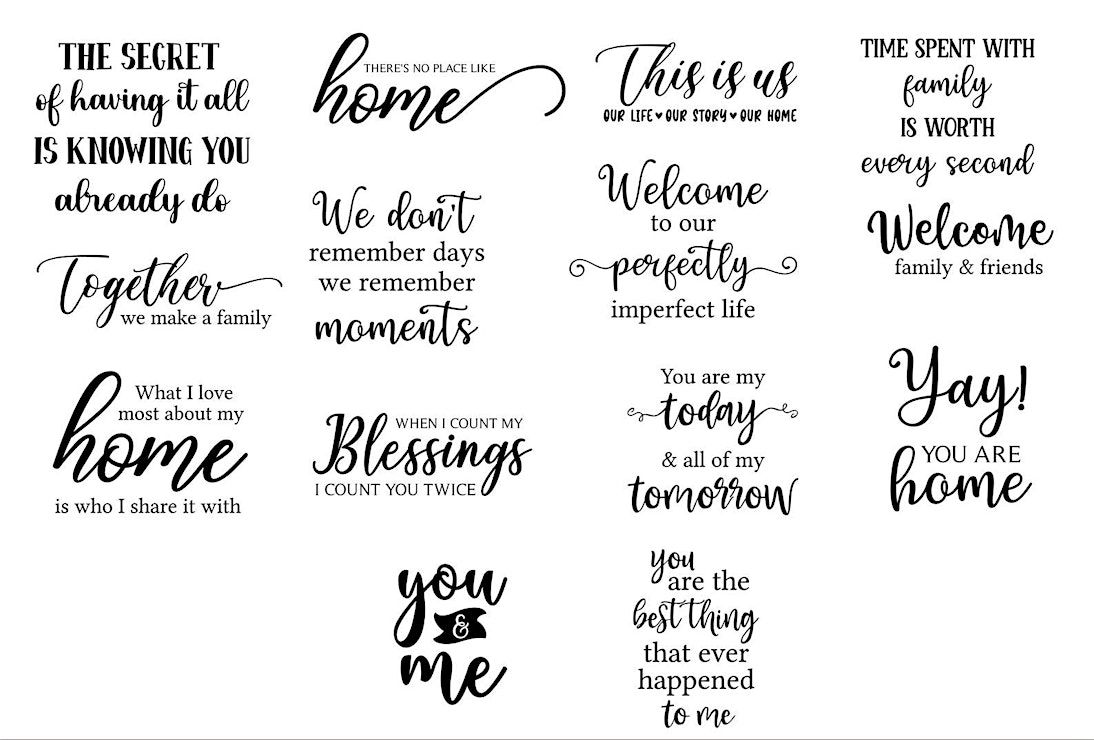 THE SECRET
of having it all
IS KNOWING YOU
already do
THERE'S NO PLACE LIKE
home
This is us
OUR LIFE ♥ OUR STORY ♥ OUR HOME
TIME SPENT WITH
family
IS WORTH
every second
Together
we make a family
We don't
remember days
we remember
moments
Welcome
to our
perfectly
imperfect life
Welcome
family & friends
What I love
most about my
home
is who I share it with
WHEN I COUNT MY
Blessings
I COUNT YOU TWICE
You are my
today
& all of my
tomorrow
Yay!
YOU ARE
home
you
&
me
You
are the
best thing
that ever
happened
to me